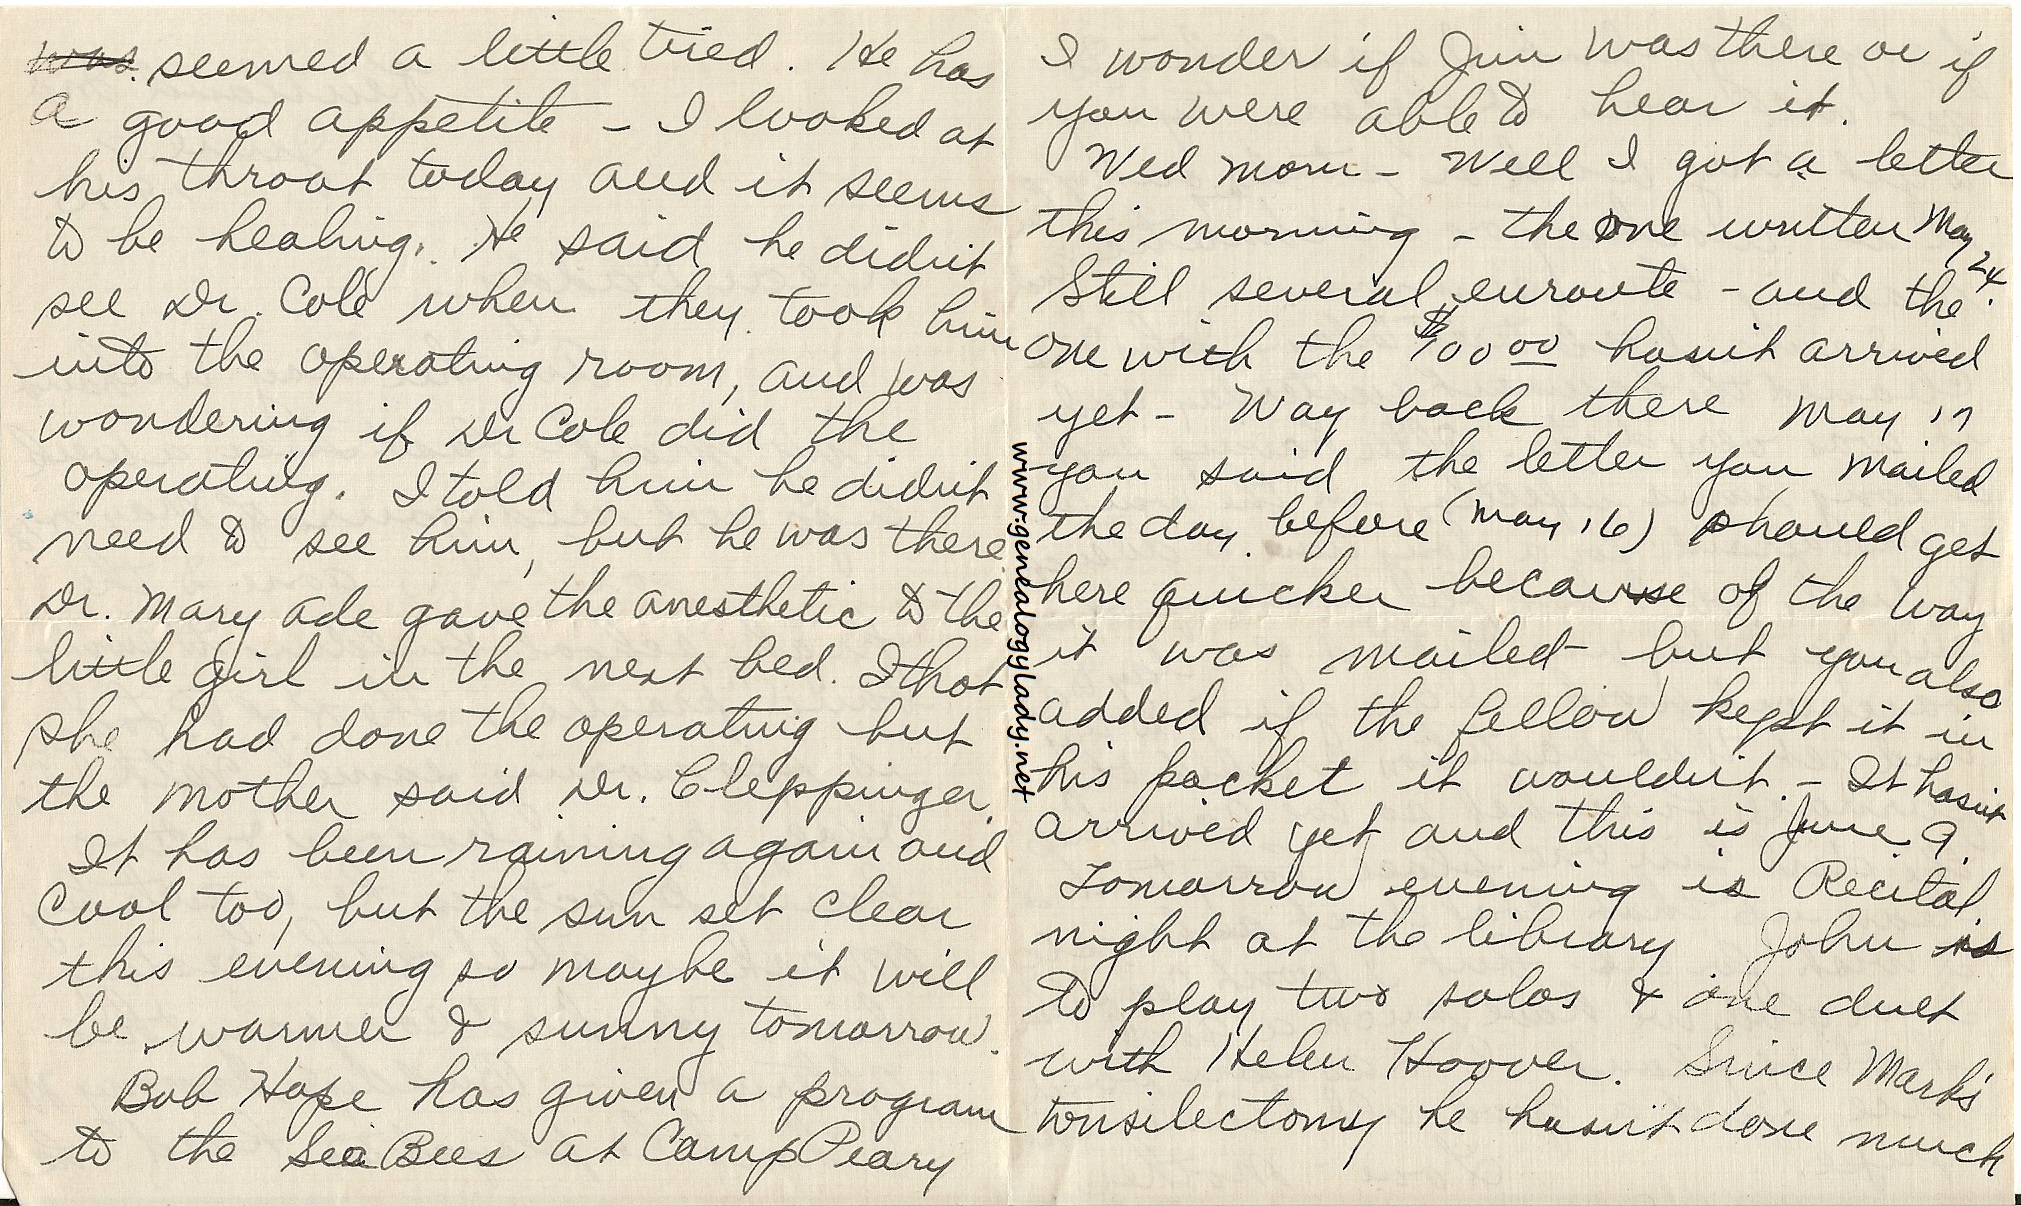 was seemed a little tired. He has
a good appetite – I looked at
his throat today and it seems
to be healing. He said he didn't
see Dr. Cole when they took him
into the operating room, and was
wondering if Dr Cole did the
operating. I told him he didn't
need to see him, but he was there
Dr. Mary Ade gave the anesthetic to the
little girl in the next bed. I thot
she had done the operating but
the mother said Dr. Cleppinger.
It has been raining again and
cool too, but the sun set clear
this evening so maybe it will
be warmer & sunny tomorrow.
Bob Hope has given a program
to the Sea Bees at Camp Peary
www.genealogylady.net
I wonder if Jim was there or if
you were able to hear it.
Wed morn – Well I got a letter
this morning – the one written May 24.
Still several enroute – and the
one with the $100 00 hasn't arrived
yet – Way back there May 17
you said the letter you mailed
the day before (May 16) should get
here quicker because of the way
it was mailed – but you also
added if the fellow kept it in
his pocket it wouldn't – It hasn't
arrived yet and this is June 9.
Tomorrow evening is Recital
night at the library John is
to play two solos & one duet
with Helen Hoover. Since Mark's
tonsilectomy he hasn't done much